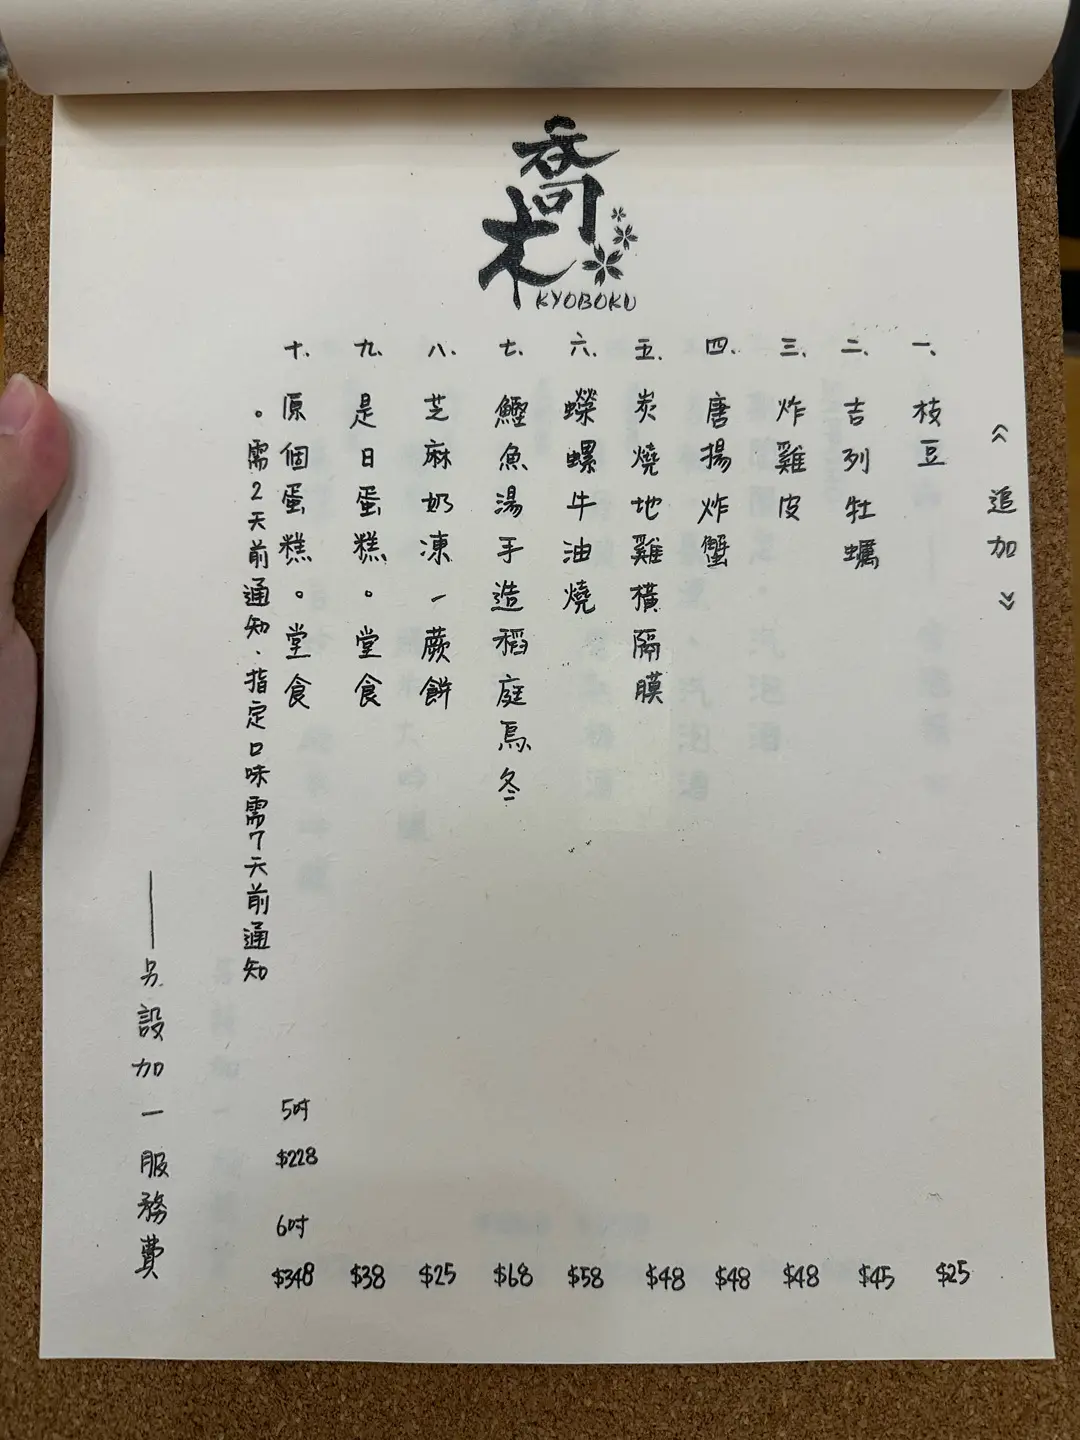 喬木
KYOBOKU
《追加》
一、枝豆 $25
二、吉列牡蠣 $45
三、炸雞皮 $48
四、唐揚炸蟹 $48
五、炭燒地雞橫隔膜 $48
六、蠑螺牛油燒 $58
七、鰹魚湯手造稻庭烏冬 $68
八、芝麻奶凍－蕨餅 $25
九、是日蛋糕。堂食 $38
十、原個蛋糕。堂食 5吋 $228 6吋 $348
。需2天前通知、指定口味需7天前通知
——另設加一服務費